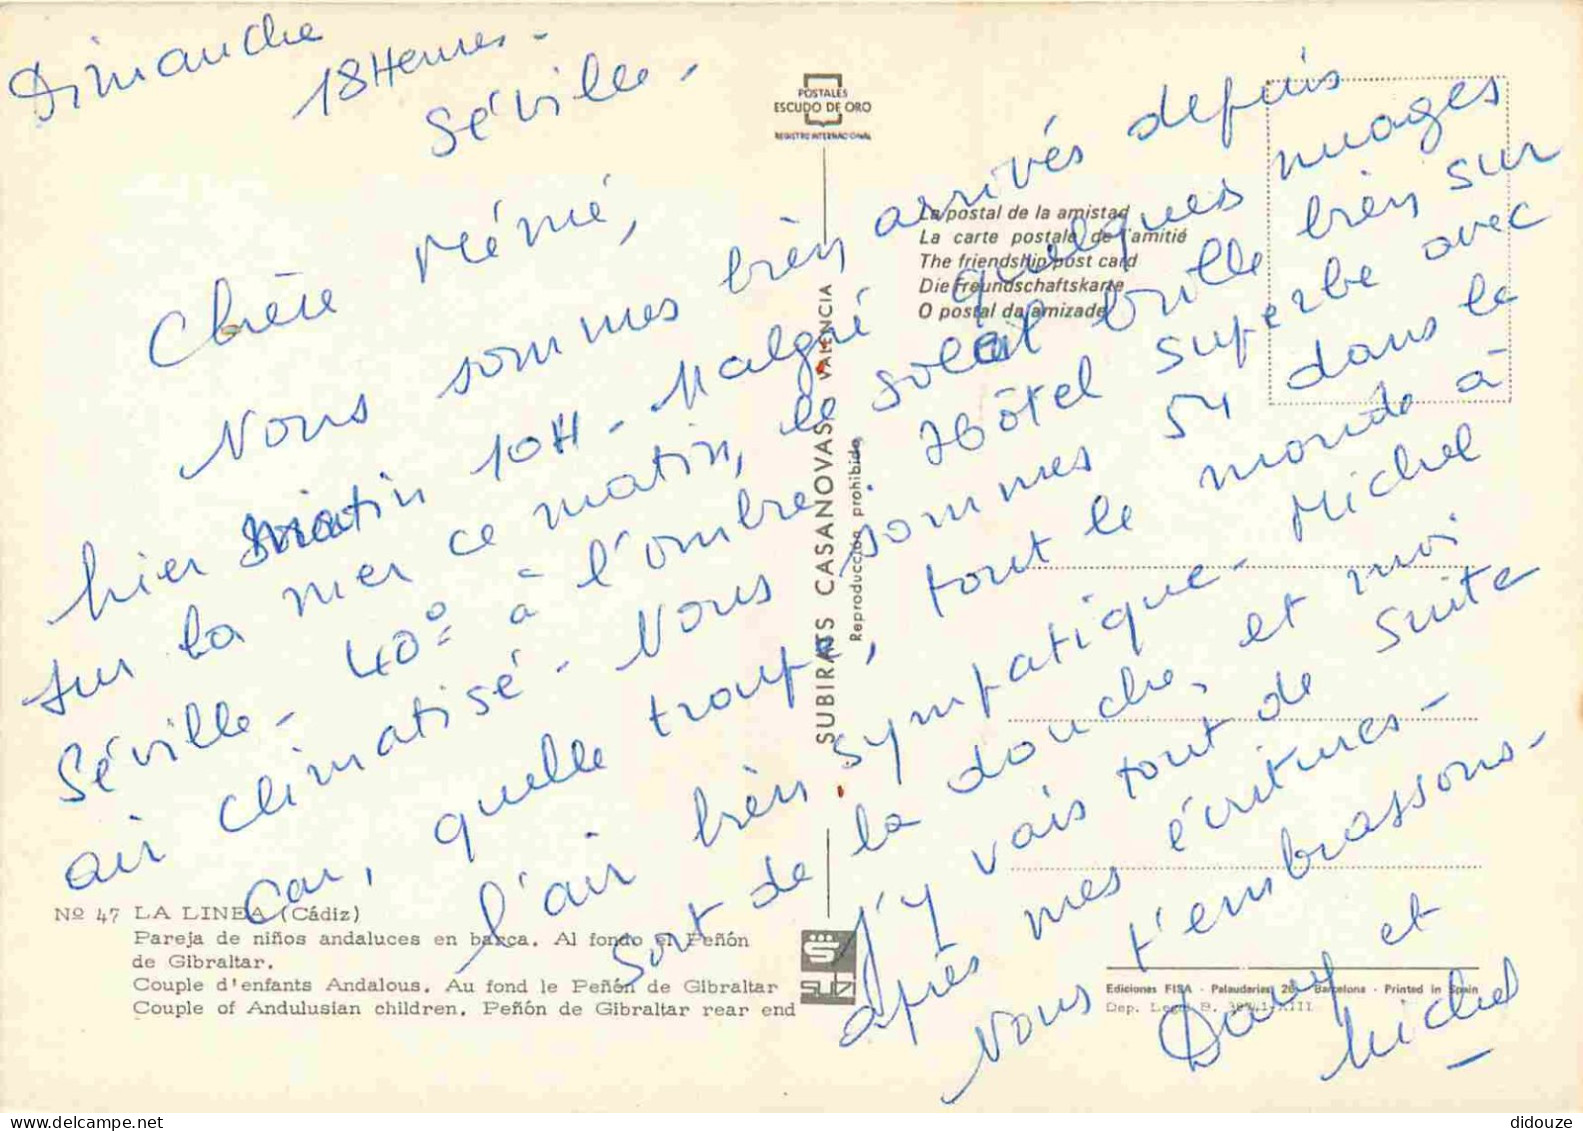 Dimanche
18 Heures -
Séville -
Chère Mémé,
Nous sommes bièn arrivés depuis
hier matin 10H - Malgré quelques nuages
sur la mer ce matin, le soleil brille bièn sur
Séville - 40° à l'ombre. Hôtel superbe avec
air climatisé - Nous sommes 54 dans le
car, quelle troupe, tout le monde à
l'air bièn sympatique - Michel
sort de la douche, et moi
J'y vais tout de suite
après mes écritures -
Nous t'embrassons -
Dany et
Michel
POSTALES
ESCUDO DE ORO
REGISTRO INTERNACIONAL
La postal de la amistad
La carte postale de l'amitié
The friendship post card
Die Freundschaftskarte
O postal da amizade
SUBIRATS CASANOVAS - VALENCIA
Reproducción prohibida
Nº 47 LA LINEA (Cádiz)
Pareja de niños andaluces en barca. Al fondo el Peñón
de Gibraltar.
Couple d'enfants Andalous. Au fond le Peñón de Gibraltar
Couple of Andulusian children. Peñón de Gibraltar rear end
Ediciones FISA - Palaudarias, 26 - Barcelona - Printed in Spain
Dep. Legal B. XIII
didouze